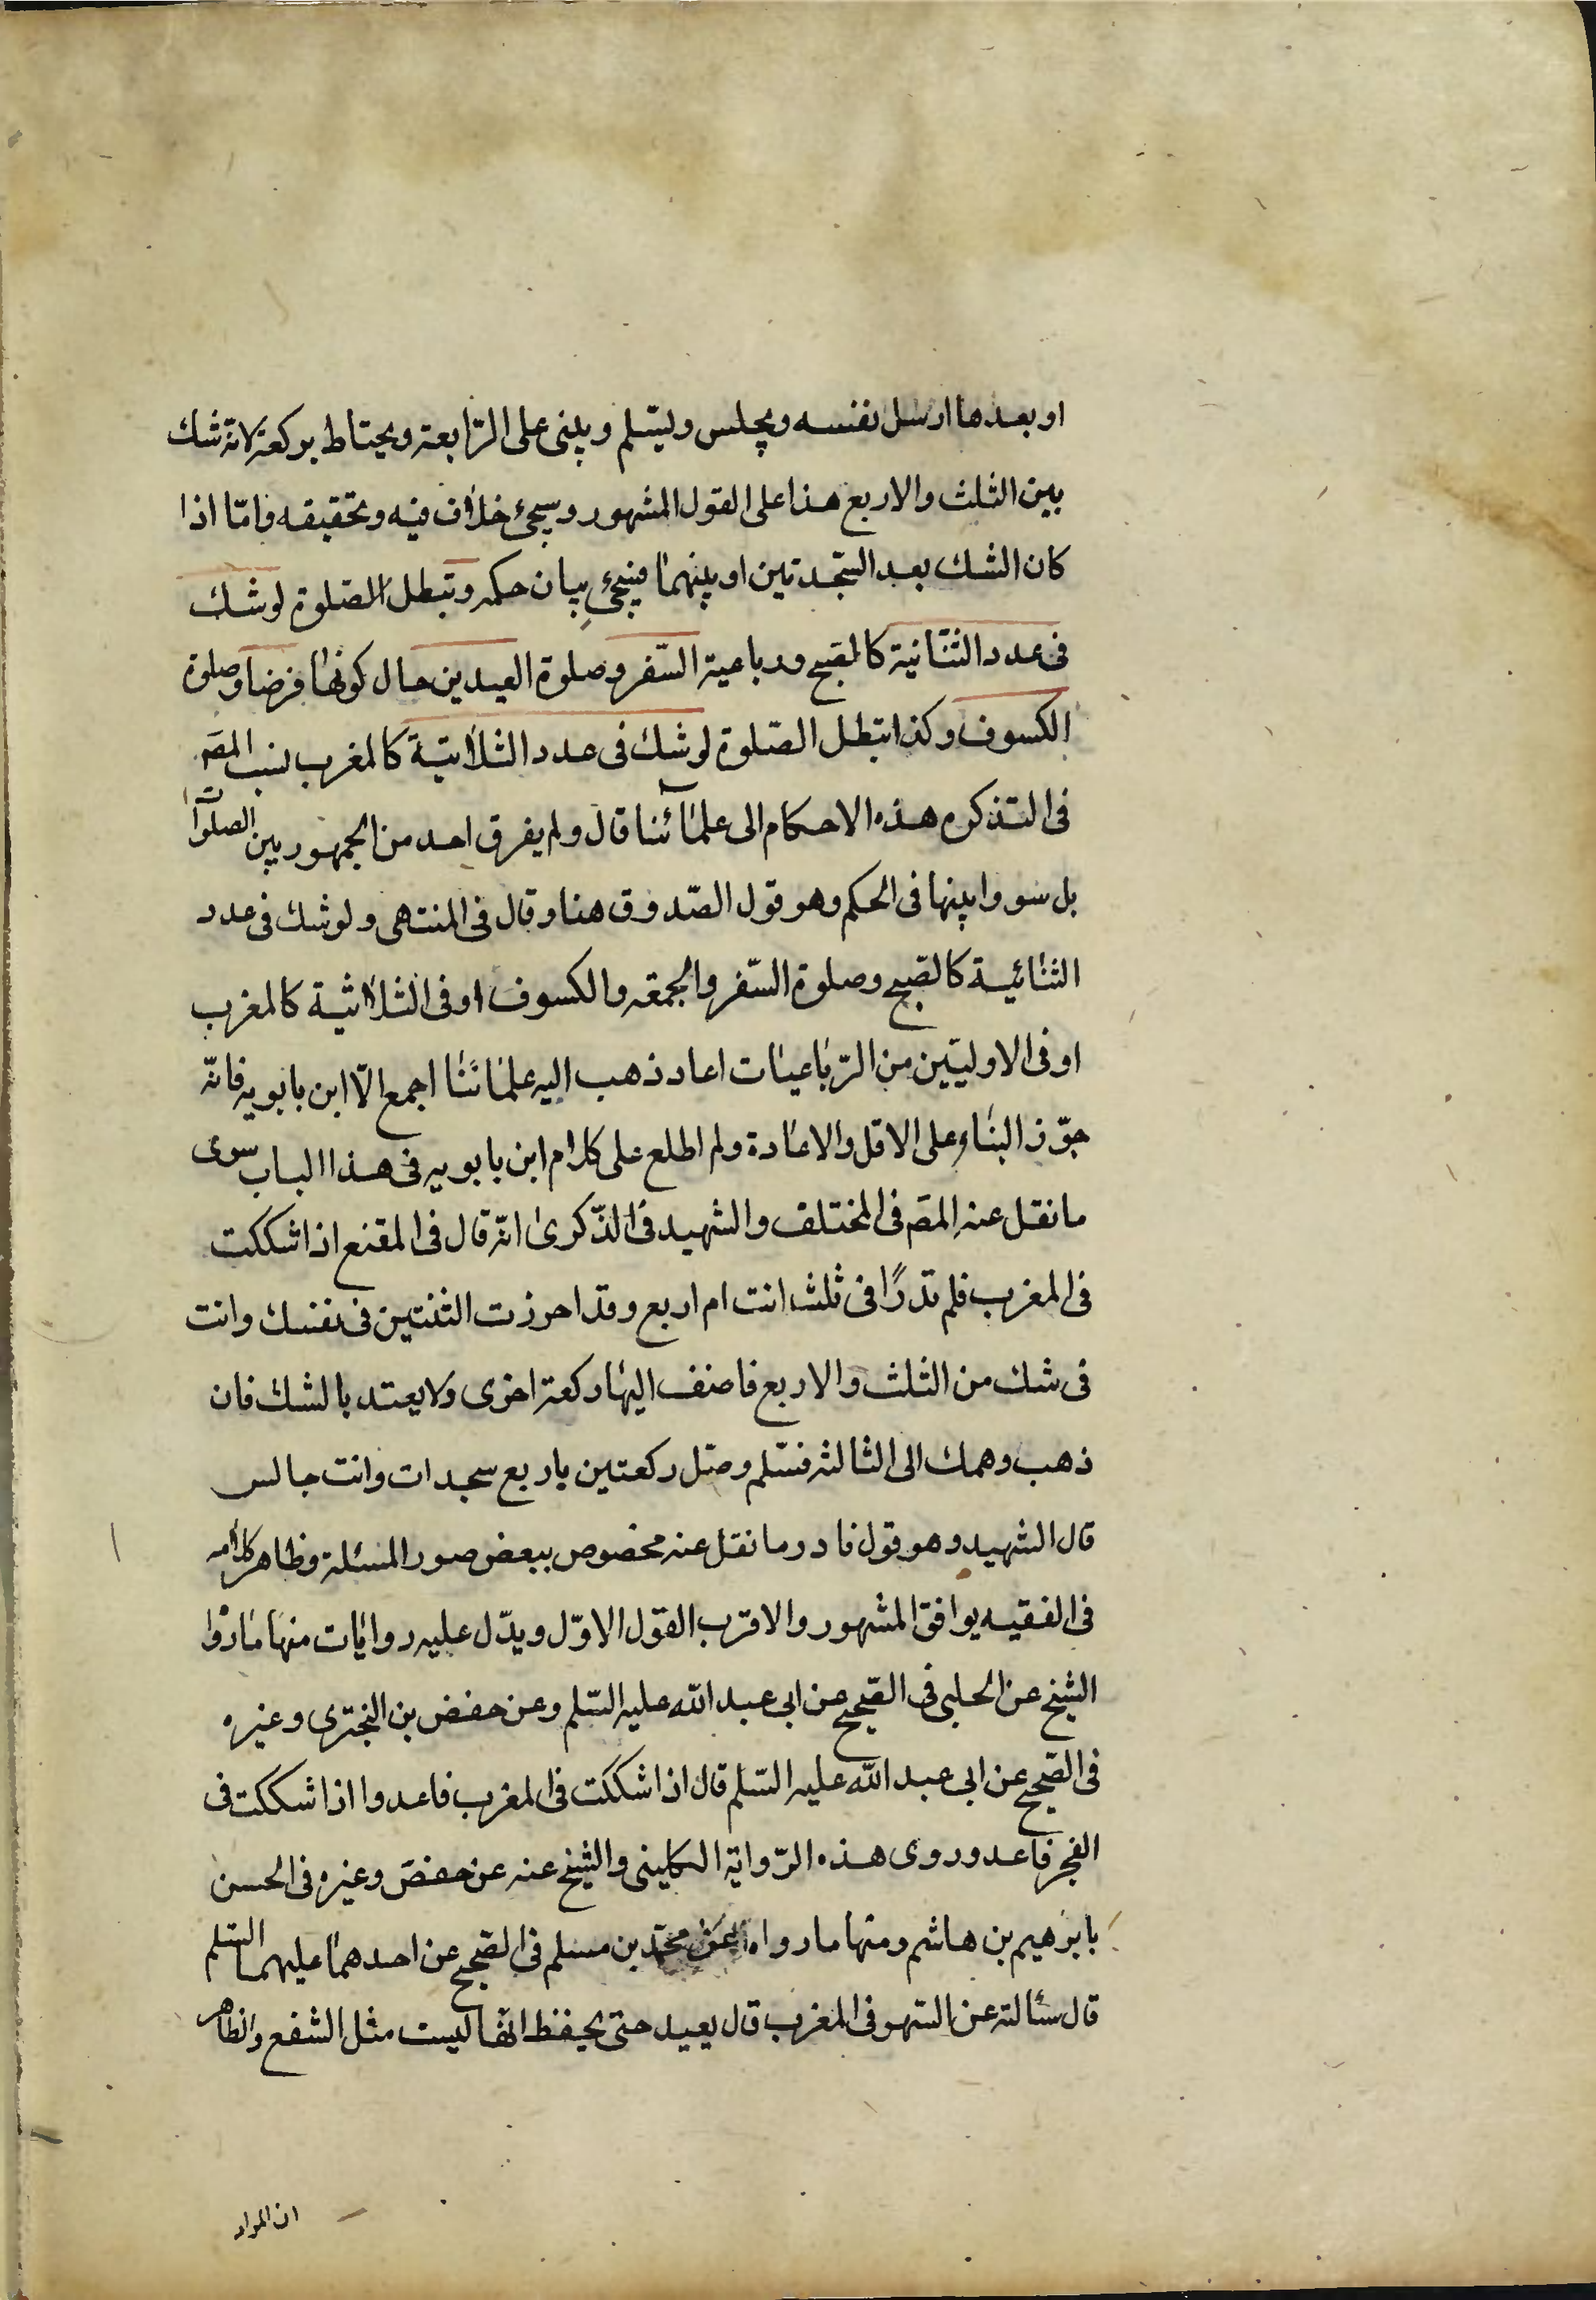 او بعدها ارسل نفسه ويجلس ويسّلم ويبنى على الرّابعة ويحتاط بركعة لانّه شك
بين الثلث والاربع هذا على القول المشهور وسيجئ خلاف فيه وتحقيقه وامّا اذا
كان الشك بعد السّجدتين او بينهما فيجئ بيان حكمه وتبطل الصّلوة لو شك
فى عدد الثنّائية كالصّبح ورباعية السّفر وصلوة العيدين حال كونها فرضا وصلوة
الكسوف وكذا تبطل الصّلوة لو شك فى عدد الثلاثية كالمغرب نسب المصَ
فى التذكره هذه الاحكام الى علمآئنا قال ولم يفرق احد من الجمهور بين الصلوات
بل سووا بينها فى الحكم وهو قول الصّدوق هنا وقال فى المنتهى ولو شك فى عدد
الثنائية كالصّبح وصلوة السّفر والجمعه والكسوف او فى الثلاثية كالمغرب
او فى الاوليّين من الرّباعيات اعاد ذهب اليه علمائنا اجمع الّا ابن بابويه فانّه
جوّز البناء على الاقل والاعادة ولم اطلع على كلام ابن بابويه فى هذا الباب سوى
ما نقل عنه المصَ فى المختلف والشهيد فى الذّكرى انّه قال فى المقنع اذا شككت
فى المغرب فلم تدر أفى ثلث انت ام اربع وقد احرزت الثنتين فى نفسك وانت
فى شك من الثلث والاربع فاضف اليها ركعة اخرى ولا يعتد بالشك فان
ذهب وهمك الى الثالثه فسّلم وصّل ركعتين باربع سجدات وانت جالس
قال الشهيد وهو قول نادر وما نقل عنه مخصوص ببعض صور المسئلة وظاهر كلامه
فى الفقيه يوافق المشهور والاقرب القول الاوّل ويدّل عليه روايات منها مارواه
الشيخ عن الحلبى فى الصّحيح عن ابى عبد الله عليه السّلم وعن حفص بن البخترى وغيره
فى الصّحيح عن ابى عبد الله عليه السّلم قال اذا شككت فى المغرب فاعد واذا شككت فى
الفجر فاعد وروى هذه الرّواية الكلينى والشيخ عنه عن حفص وغيره فى الحسن
بابرهيم بن هاشم ومنها ما رواه عن محمّد بن مسلم فى الصّحيح عن احدهما عليهما السّلم
قال سئالته عن السّهو فى المغرب قال يعيد حتى يحفظ انّها ليست مثل الشفع والظاهر
ان المراد